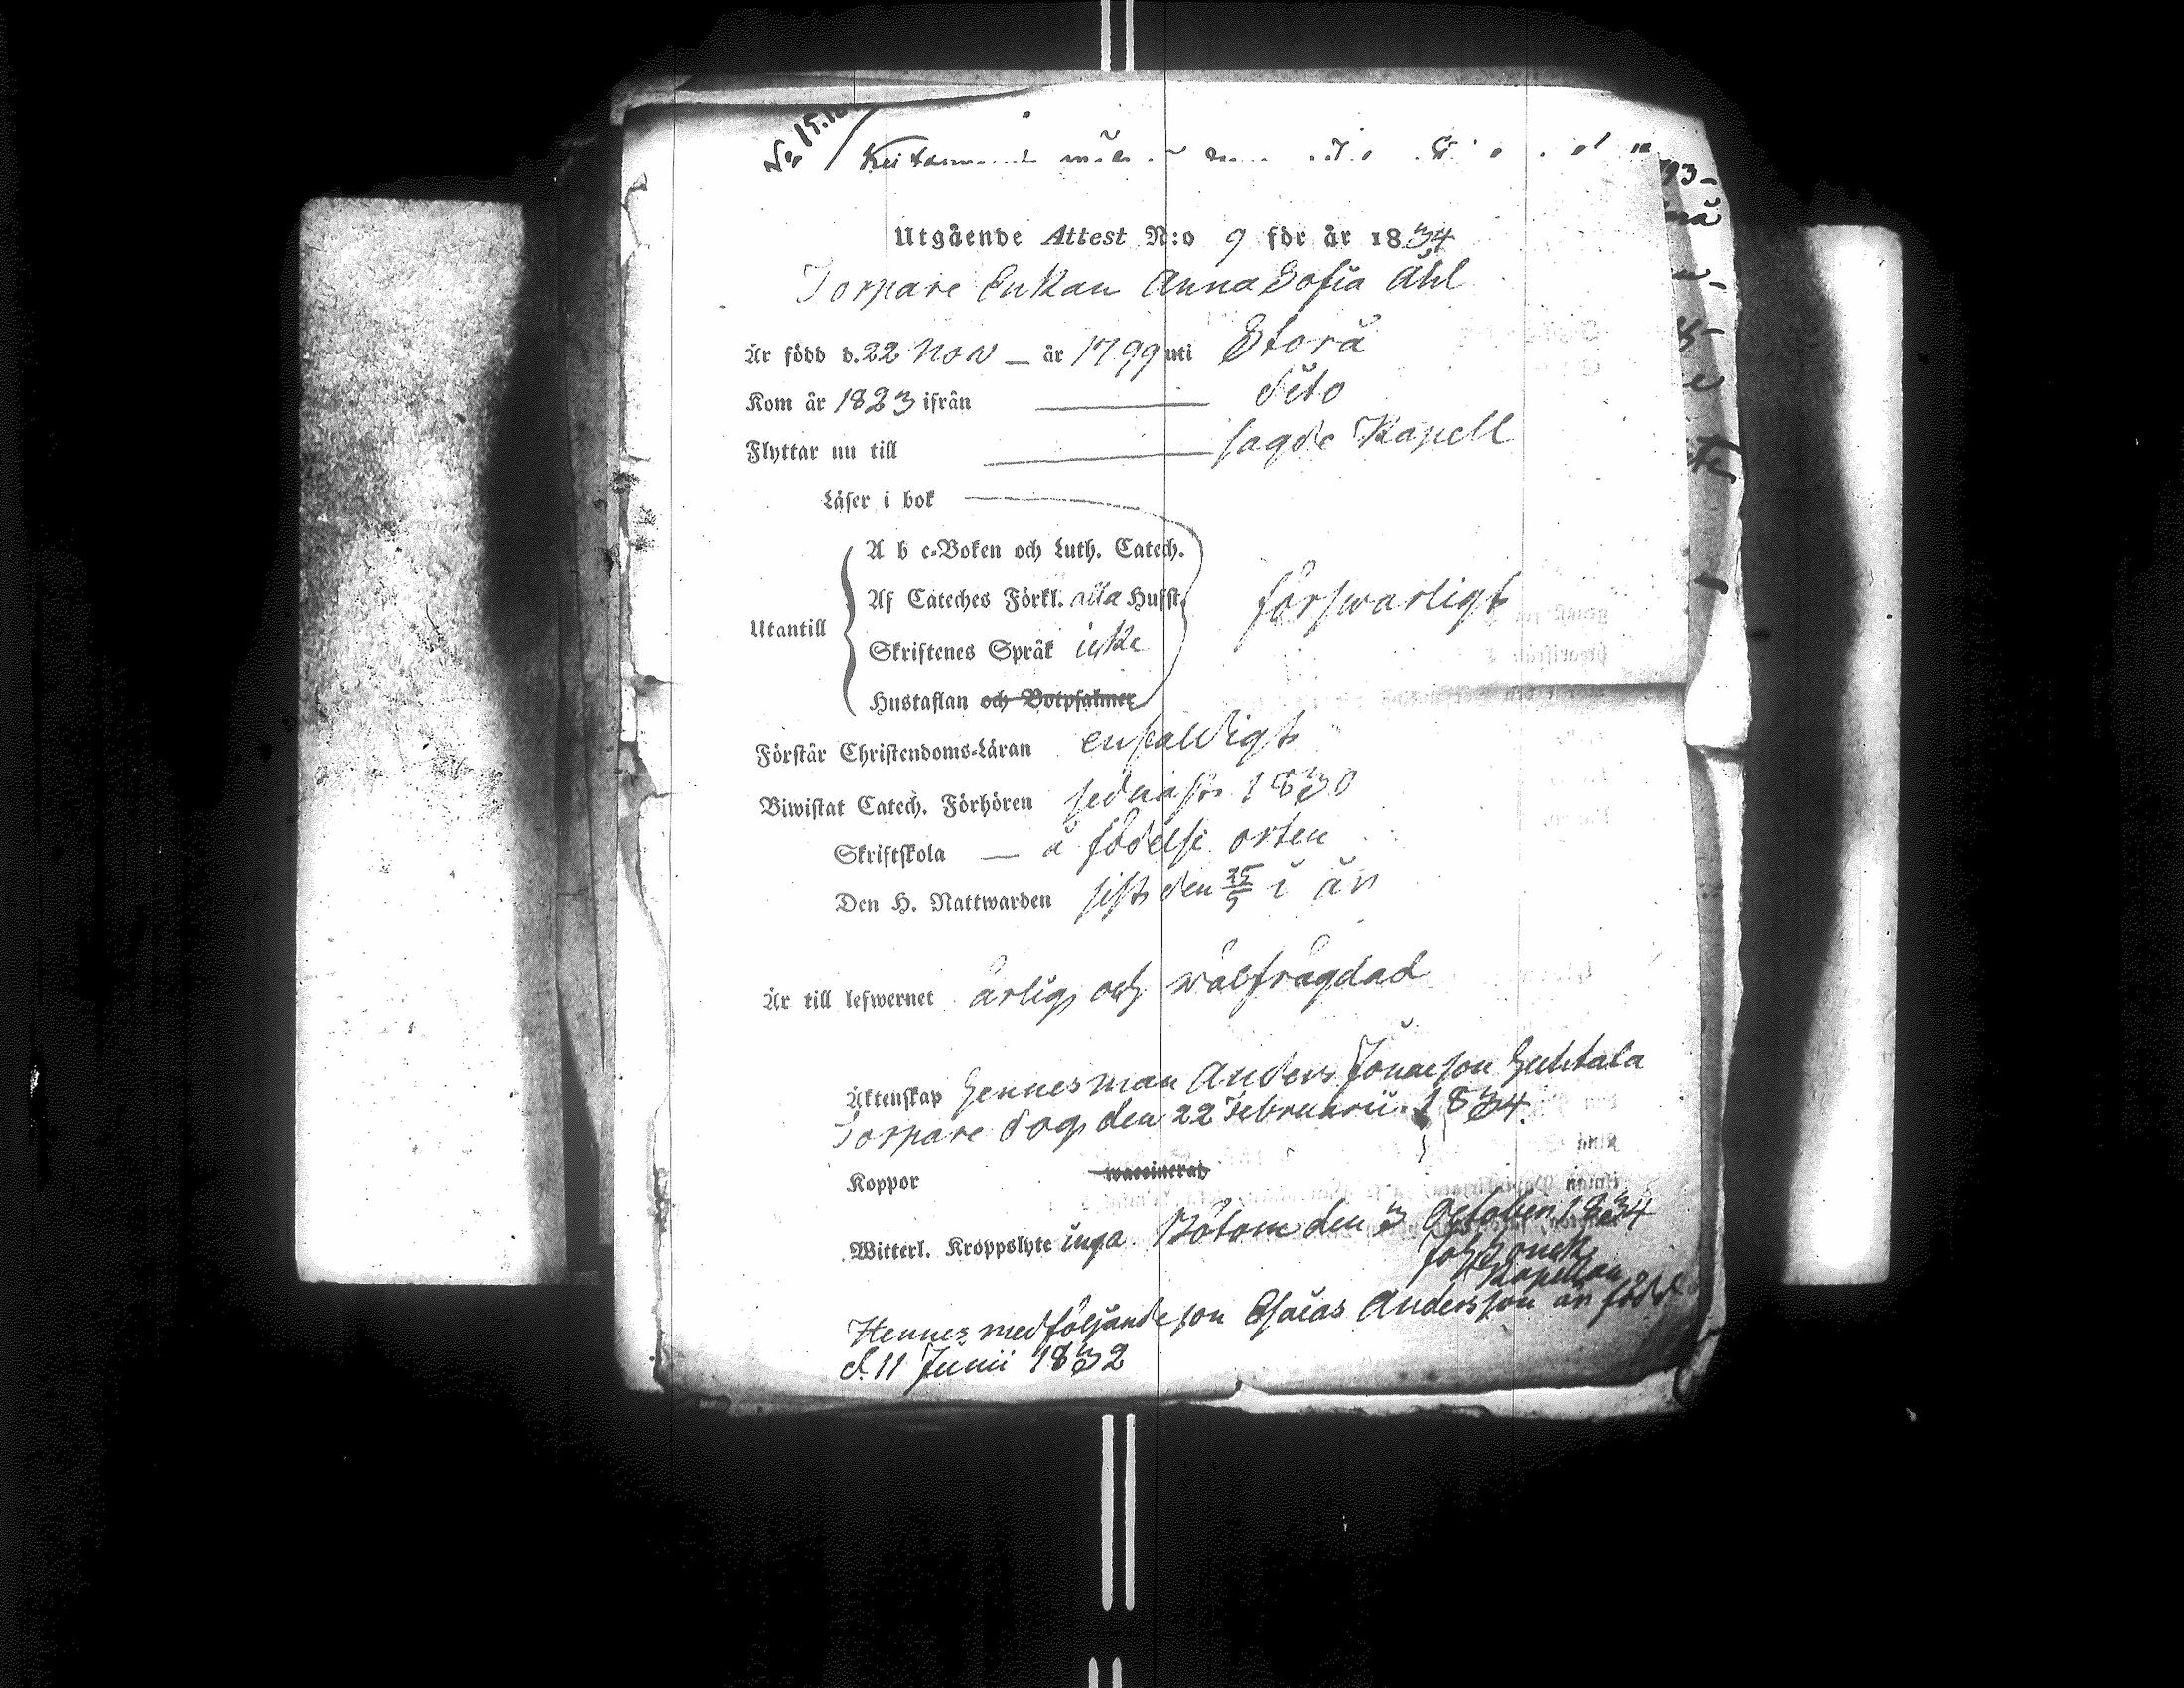 No 15.
Utgående Attest N:o 9 för år 1834
Torpare Enkan Anna Sofia Åhl
Är född d. 22 Nov — år 1799 uti Storå
Kom år 1823 ifrån — dito
Flyttar nu till — sagde Kapell
Läser i bok
A b c-Boken och Luth. Catech.
Af Cateches Förkl. alla Hufst.
förswarligt
Utantill
Skriftenes Språk icke
Hustaflan och Botpsalmer
Förstår Christendoms-Läran enfaldigt
Biwistat Catech. Förhören sednast 1830
Skriftskola — å födelse orten
Den H. Nattwarden sist den 25/5 i år
Är till lefwernet ärlig och wälfrägdad
Äktenskap Hennes man Anders Jonasson
Torpare dog den 22 Februarii 1834.
Koppor waccinerad
Witterl. Kroppslyte inga Bötom den 3 October 1834
Kapellan
Hennes medföljande son Esaias Andersson är född
d. 11 Junii 1832